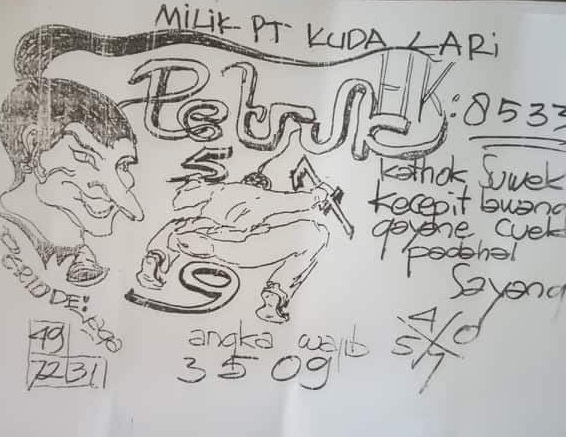 MILIK PT KUDA LARI
Petruk
HK: 8533
5
kathok Suwek
kecepit lawang
gayane cuek
padahal
Sayang
9
PERIODE:
49
72 31
angka wajib
3 5 0 9
4
0
5
7